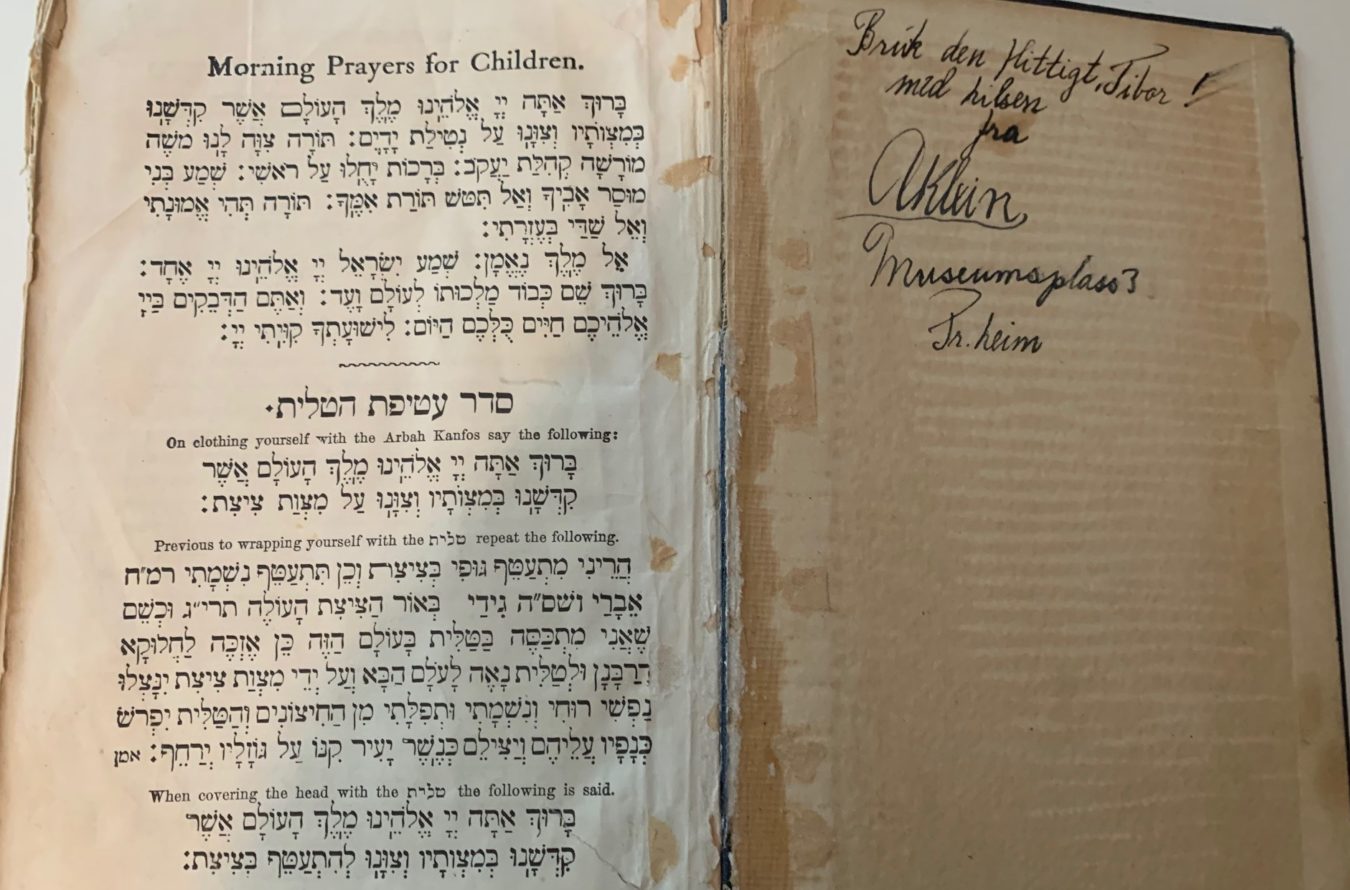 Morning Prayers for Children.
בָּרוּךְ אַתָּה יְיָ אֱלֹהֵינוּ מֶלֶךְ הָעוֹלָם אֲשֶׁר קִדְּשָׁנוּ
בְּמִצְוֹתָיו וְצִוָּנוּ עַל נְטִילַת יָדָיִם: תּוֹרָה צִוָּה לָנוּ משֶׁה
מוֹרָשָׁה קְהִלַּת יַעֲקֹב: בְּרָכוֹת יָחֻלוּ עַל רֹאשִׁי: שְׁמַע בְּנִי
מוּסַר אָבִיךָ וְאַל תִּטּשׁ תּוֹרַת אִמֶּךָ: תּוֹרָה תְּהִי אֱמוּנָתִי
וְאֵל שַׁדַּי בְּעֶזְרָתִי:
אֵל מֶלֶךְ נֶאֱמָן: שְׁמַע יִשְׂרָאֵל יְיָ אֱלֹהֵינוּ יְיָ אֶחָד:
בָּרוּךְ שֵׁם כְּבוֹד מַלְכוּתוֹ לְעוֹלָם וָעֶד: וְאַתֶּם הַדְּבֵקִים בַּיְיָ
אֱלֹהֵיכֶם חַיִּים כֻּלְּכֶם הַיּוֹם: לִישׁוּעָתְךָ קִוִּיתִי יְיָ:
סדר עטיפת הטלית.
On clothing yourself with the Arbah Kanfos say the following:
בָּרוּךְ אַתָּה יְיָ אֱלֹהֵינוּ מֶלֶךְ הָעוֹלָם אֲשֶׁר
קִדְּשָׁנוּ בְּמִצְוֹתָיו וְצִוָּנוּ עַל מִצְוַת צִיצִת:
Previous to wrapping yourself with the טלית repeat the following.
הֲרֵינִי מִתְעַטֵּף גּוּפִי בְּצִיצִת וְכֵן תִּתְעַטֵּף נִשְׁמָתִי רמ״ח
אֵבָרַי ושס״ה גִידַי בְּאוֹר הַצִּיצִת הָעוֹלֶה תרי״ג וּכְשֵׁם
שֶׁאֲנִי מִתְכַּסֶּה בַּטַּלִּית בָּעוֹלָם הַזֶּה כֵּן אֶזְכֶּה לַחֲלוּקָא
דְרַבָּנָן וּלְטַלִּית נָאֶה לָעֹלָם הַבָּא וְעַל יְדֵי מִצְוַת צִיצִת יִנָּצְלוּ
נַפְשִׁי רוּחִי וְנִשְׁמָתִי וּתְפִלָּתִי מִן הַחִיצוֹנִים וְהַטַּלִּית יִפְרֹשׂ
כְּנָפָיו עֲלֵיהֶם וְיַצִּילֵם כְּנֶשֶׁר יָעִיר קִנּוֹ עַל גּוֹזָלָיו יְרַחֵף: אמן
When covering the head with the טלית the following is said.
בָּרוּךְ אַתָּה יְיָ אֱלֹהֵינוּ מֶלֶךְ הָעוֹלָם אֲשֶׁר
קִדְּשָׁנוּ בְּמִצְוֹתָיו וְצִוָּנוּ לְהִתְעַטֵּף בְּצִיצִת:
Brúk den Hittigt, Tibor!
med hilsen
fra
AKlein
Museumsplass 3
Tr.heim